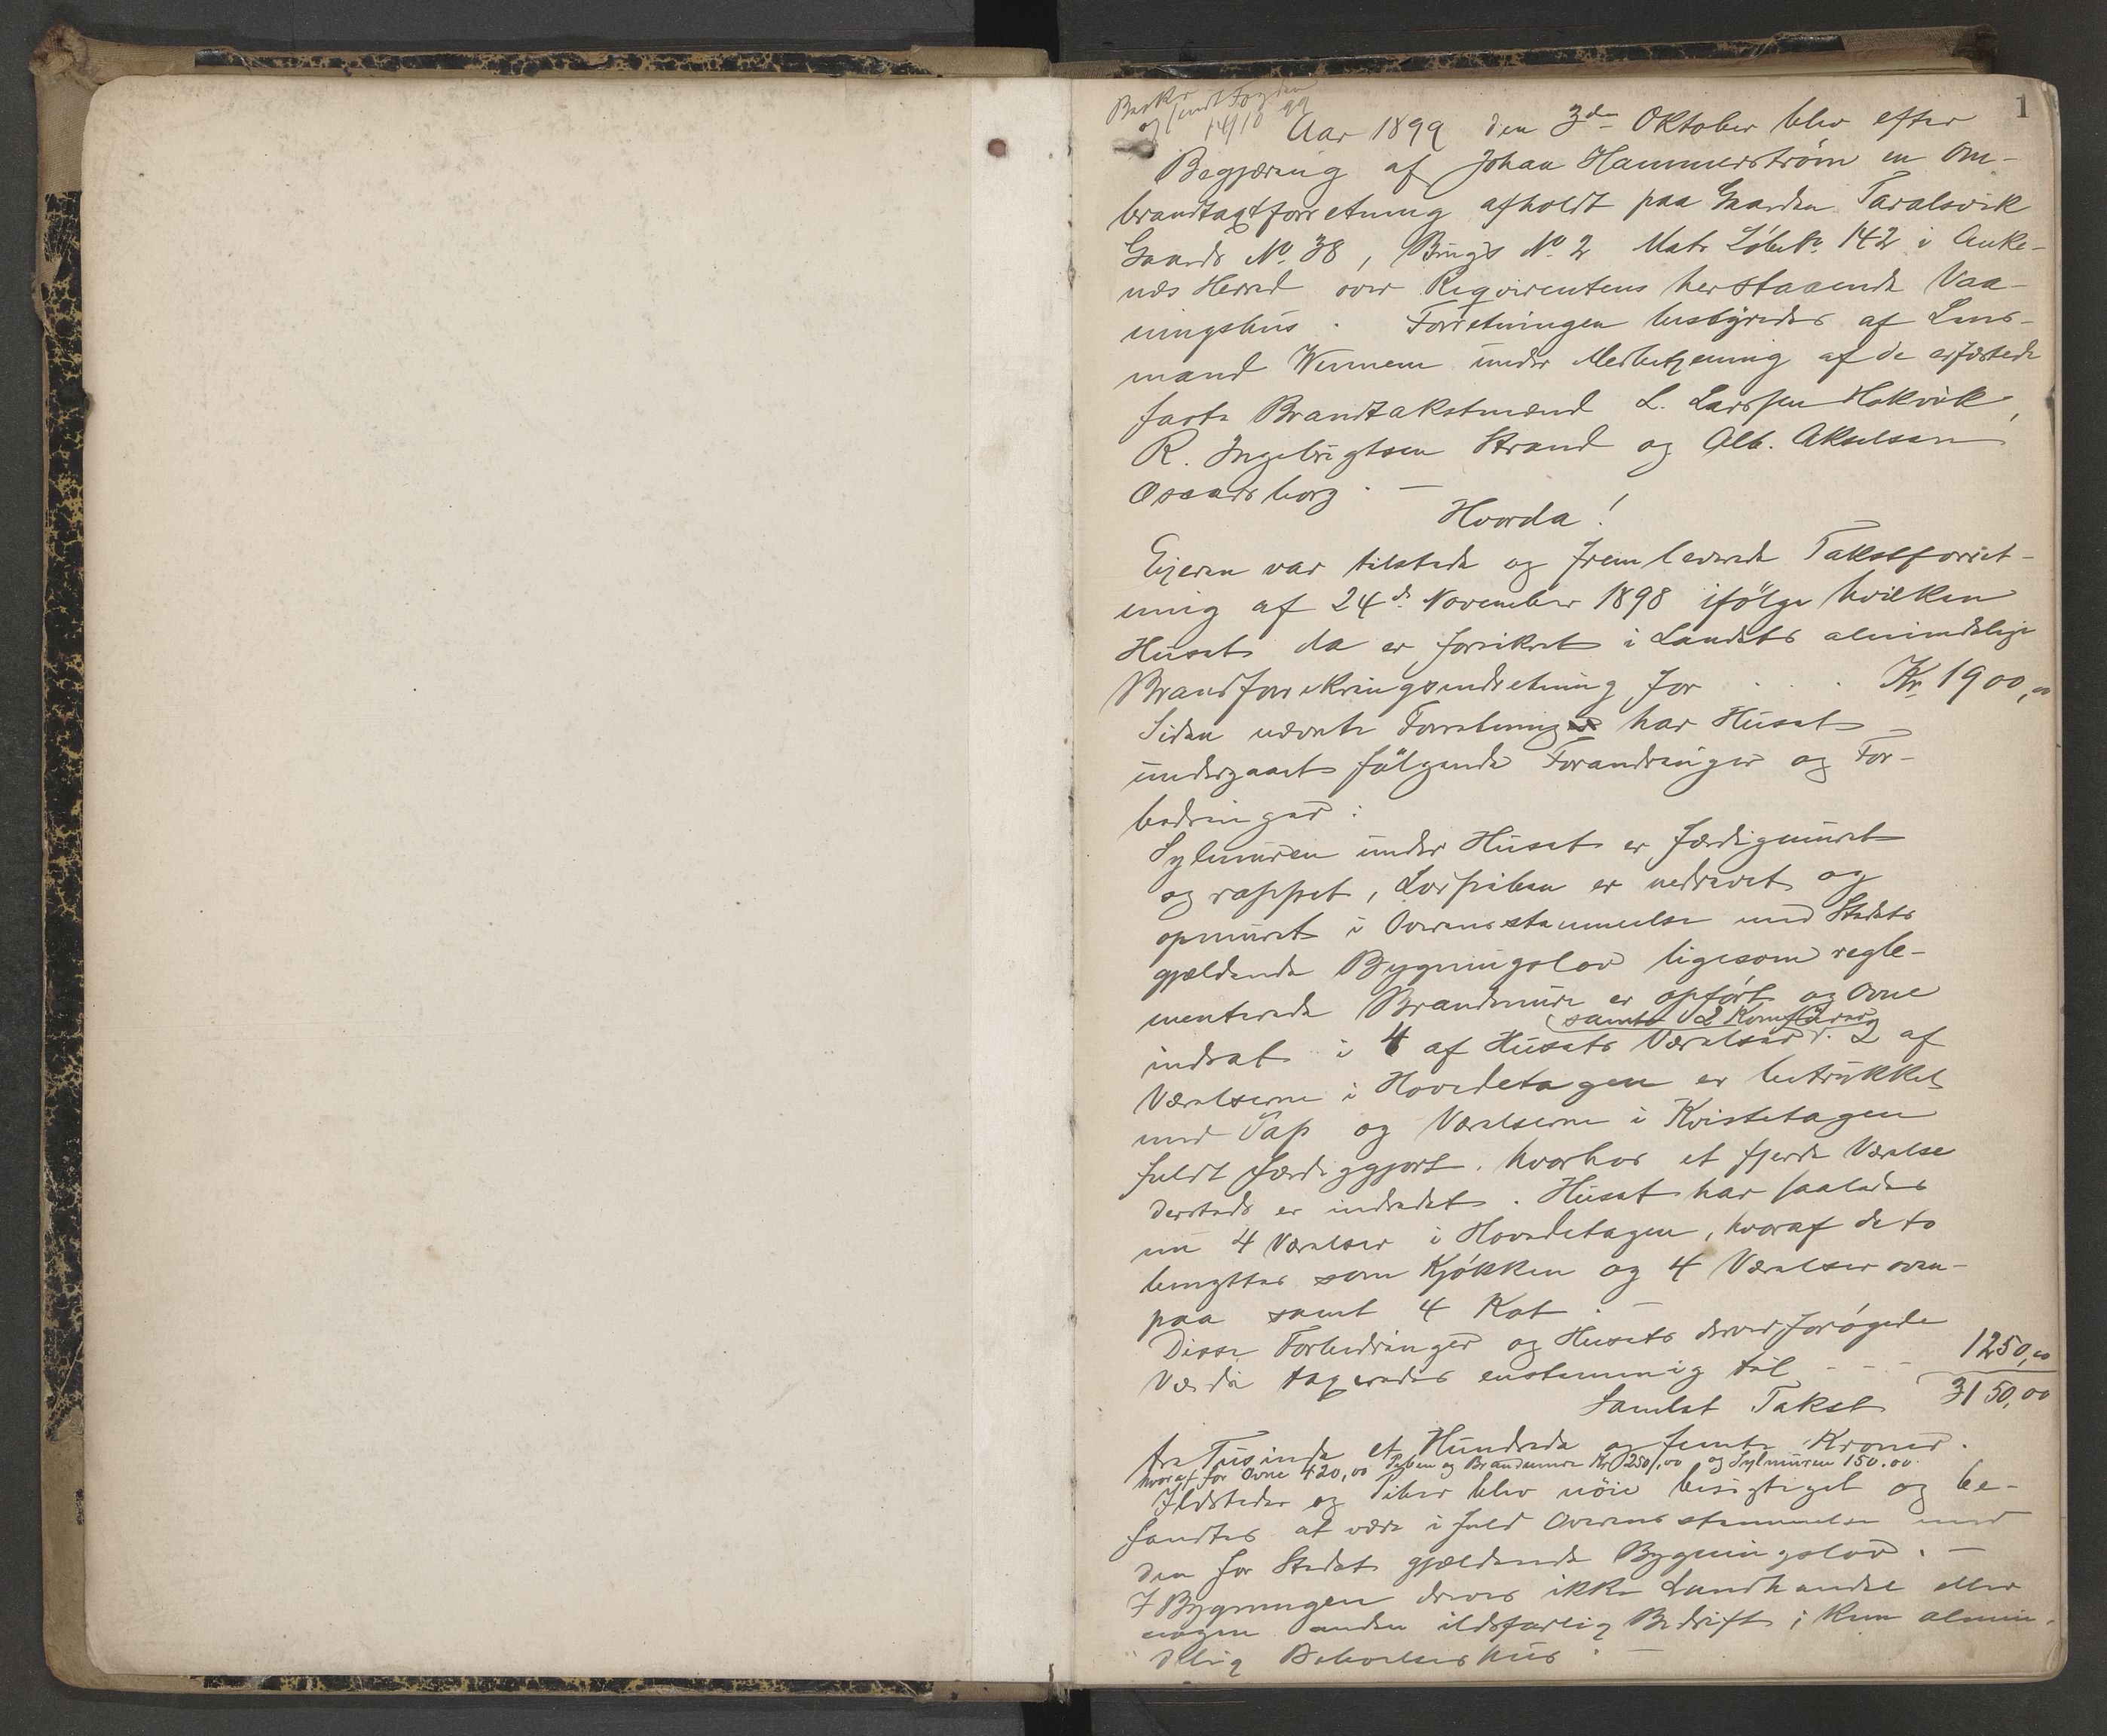 1
Beskr
og sendt Fogden
14/10 99
Aar 1899 den 3die Oktober blev efter
Begjæring af Johan Hammerstrøm en Om-
brandtaxtforretning afholdt paa Gaarden Taralsvik
Gaards No. 38, Brugs No. 2 Matr Løbeno. 142 i Anke-
næs Herred over Reqvirentens herstaaende Vaa-
ningshus. Forretningen bestyredes af Lens-
mand Wennem under Medbetjening af de edfæstede
faste Brandtakstmænd L. Larssen Hokvik,
R. Ingebrigtsen Strand og Alb. Akselsen
Oscarsborg. —
Hvorda!
Eieren var tilstede og fremleverede Takstforret-
ning af 24de November 1898 ifølge hvilken
Huset da er forsikret i Landets almindelige
Brandforsikringsindretning for . . . Kr 1900,00
Siden nævnte Forretning har Huset
undergaaet følgende Forandringer og For-
bedringer:
Sylmuren under Huset er færdigmuret
og rappet, Lufpiben er nedrevet og
opmuret i Overensstemmelse med Stedets
gjældende Bygningslov ligesom regle-
menterede Brandmure er opført og Ovne
samt 2 Komfurer
indsat i 4 af Husets Værelser. 2 af
Værelserne i Hovedetagen er betrukket
med Pap og Værelserne i Kvistetagen
fuldt færdiggjort, hvorhos et fjerde Værelse
dersteds er indredet. Huset har saaledes
nu 4 Værelser i Hovedetagen, hvoraf de to
benyttes som Kjøkken og 4 Værelser oven-
paa samt 4 Kot. —
Disse Forbedringer og Husets derved forøgede
Værdi taxeredes enstemmig til - - - 1250,00
Samlet Takst 3150,00
tre Tusinde et Hundrede og femti Kroner.
hvoraf for Ovne 420,00 Piben og Brandmure Kr 250,00 og Sylmuren 150.00.
Ildsteder og Piber blev nøie besigtiget og be-
fandtes at være i fuld Overensstemmelse med
den for Stedet gjældende Bygningslov. —
I Bygningen drives ikke Landhandel eller
nogen anden ildsfarlig Bedrift; kun almin-
delig Beboelseshus. —